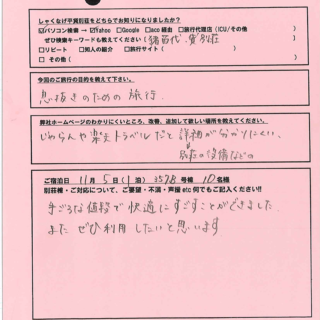 しゃくなげ平貸別荘をどちらでお知りになりましたか?
☑パソコン検索 → ☑Yahoo □Google □aco 経由 □旅行代理店 (ICU/その他 )
ぜひ検索キーワードも教えてください( 猪苗代、貸別荘 )
□リピート □知人の紹介 □旅行サイト( )
□ その他 ( )
今回のご旅行の目的を教えて下さい。
息抜きのための旅行.
弊社ホームページのわかりにくいところ、改善、追加して欲しい場所を教えてください。
じゃらんや楽天トラベルだと 詳細が分かりにくい、
別荘の設備などの
ご宿泊日 11月 5日(1泊) 3578 号棟 10名様
別荘棟・ご対応について、ご要望・不満・声援 etc 何でもご記入ください!!
手ごろな値段で快適にすごすことができました
またぜひ利用したいと思います